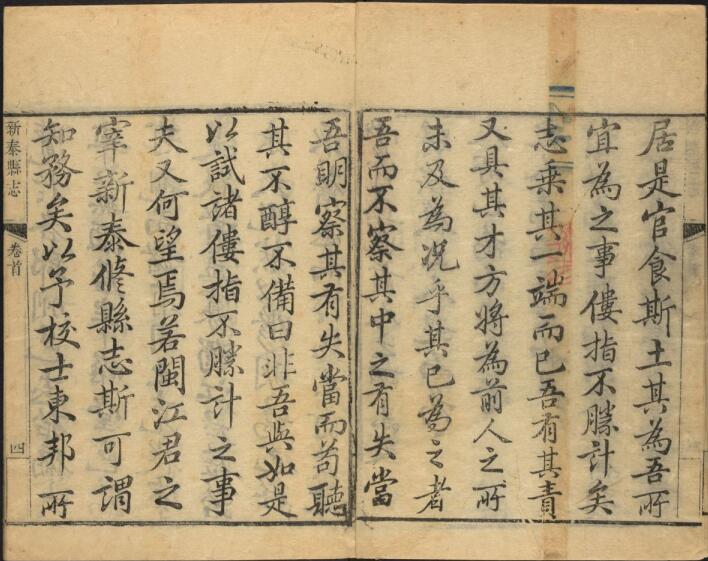 居是官食斯土其為吾所
宜為之事僂指不勝計矣
志乗其一端而已吾有其責
又具其才方將為前人之所
未及為况乎其已為之者
吾而不察其中之有失當
吾明察其有失當而苟聽
其不醇不備曰非吾與如是
以試諸僂指不勝計之事
夫又何望焉若閩江君之
宰新泰修縣志斯可謂
知務矣以予校士東邦所
新泰縣志
卷首
四